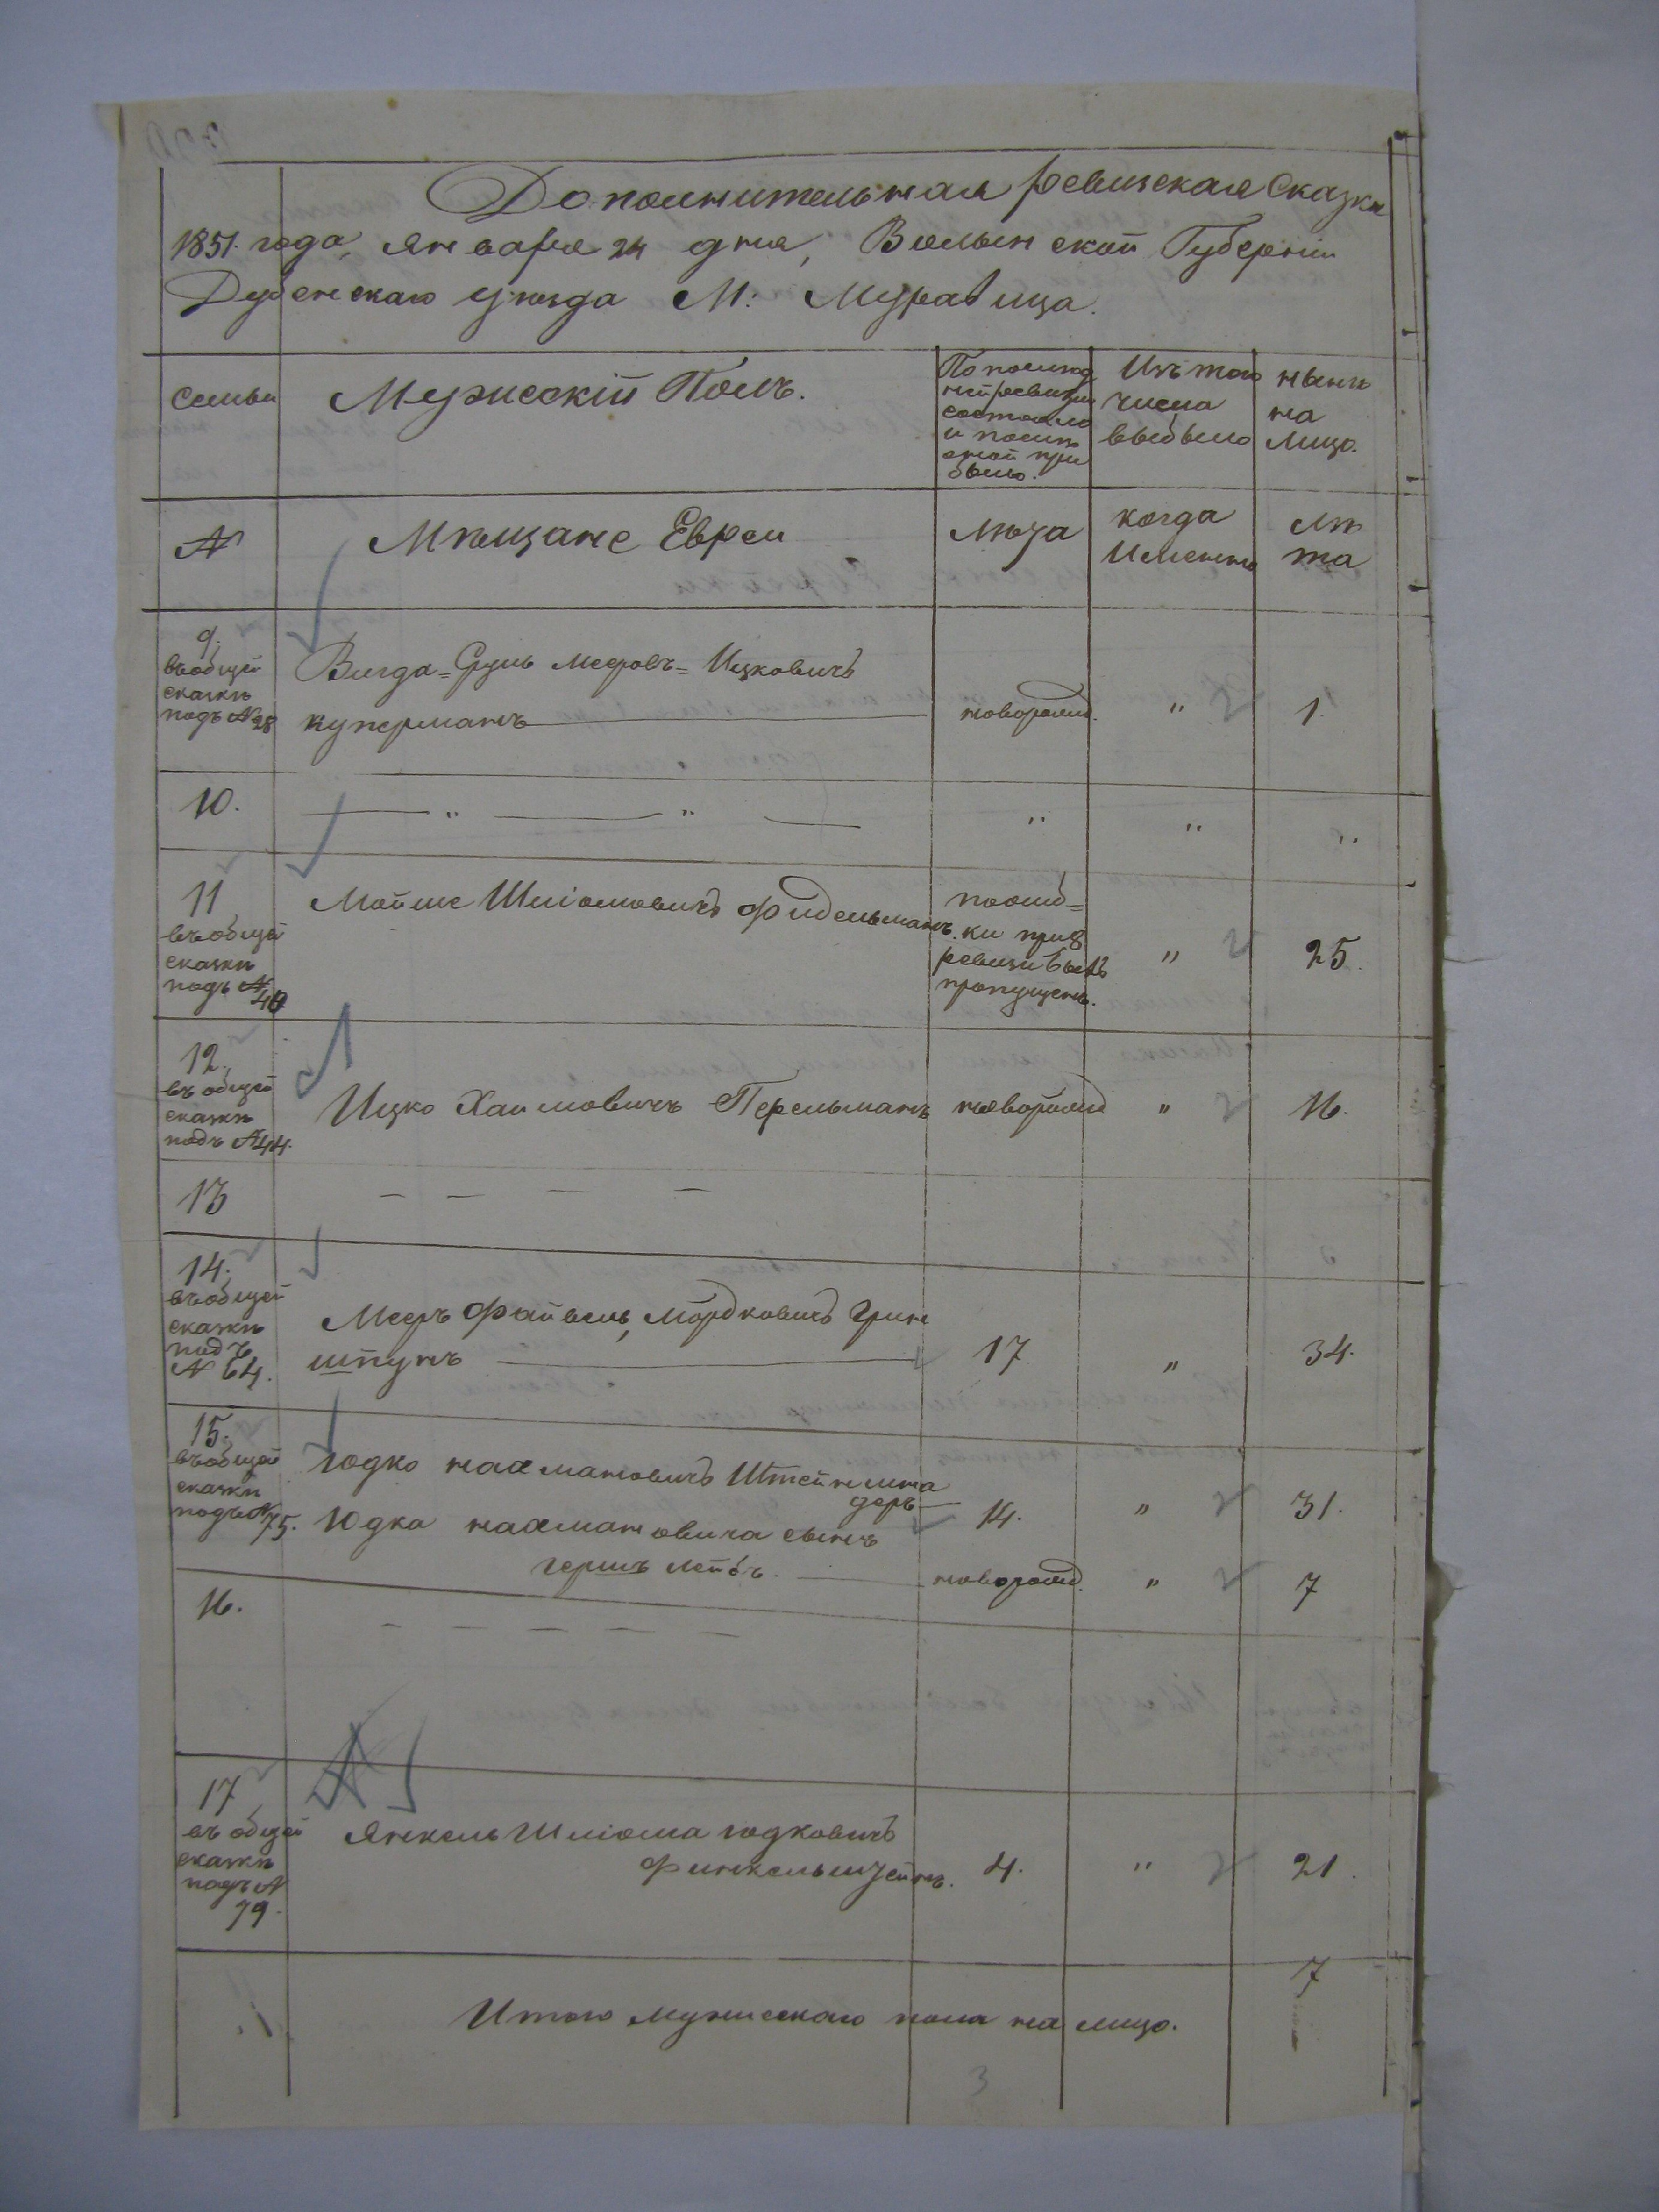 Дополнительная ревизская Сказка
1851. года, января 24 дня, Волынской Губерніи
Дубенскаго уѣзда М: Муравица.
Семьи
Мужескій Полъ.
По послѣд
ней ревизіи
состояло
и послѣ
оной при
было.
Изъ того
числа
выбыло
нынѣ
на
лицо.
№
Мѣщане Евреи
лѣта
когда
Именно
лѣ
та
9.
въ общей
сказкѣ
подъ № 28
Срулъ Меровъ= Ицковичъ
куперманъ
новорожд.
"
1.
10.
" "
"
"
"
11
въ общей
сказкѣ
подъ №
40
Мойше Шліомовичъ Фидельманъ.
по ошиб=
ки при 8
ревизіи былъ
пропущенъ.
"
25.
12.
въ общей
сказкѣ
подъ № 44.
Ицко Хаимовичъ Перельманъ
новорожд
"
16.
13
14.
въ общей
сказкѣ
подъ
№ 64.
Меръ Файвель, Мордковичъ Грин
шпунъ
17
"
34.
15.
въ общей
сказкѣ
подъ №
75.
Юдко нахмановичъ Штейншна
деръ
14.
"
31.
Юдка нахмановича сынъ
гершъ лейбъ
новорожд.
"
7
16.
17
въ общей
сказкѣ
подъ №
79.
Янкель Шліома юдковичъ
Финкельштейнъ.
4.
"
21.
Итого мужескаго пола на лицо.
7
3